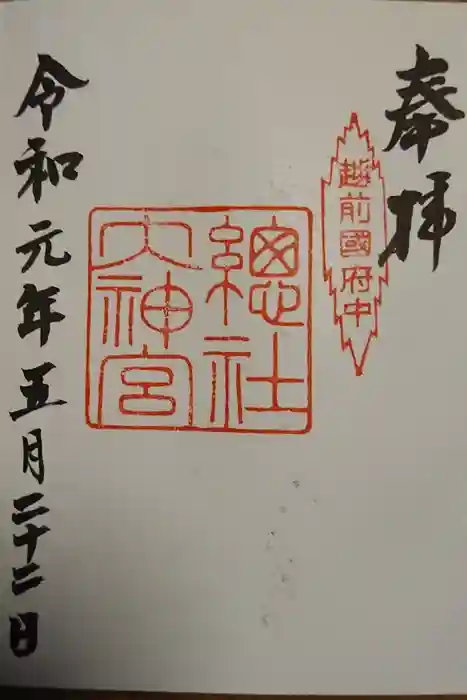 奉拝
越前國府中
總社
大神宮
令和元年五月二十二日